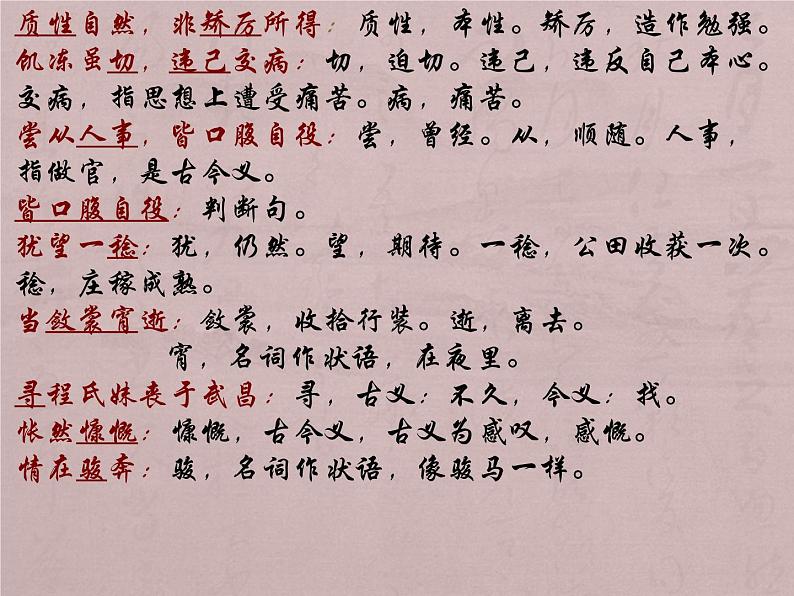 质性自然，非矫厉所得：质性，本性。矫厉，造作勉强。
饥冻虽切，违己交病：切，迫切。违己，违反自己本心。
交病，指思想上遭受痛苦。病，痛苦。
尝从人事，皆口腹自役：尝，曾经。从，顺随。人事，
指做官，是古今义。
皆口腹自役：判断句。
犹望一稔：犹，仍然。望，期待。一稔，公田收获一次。
稔，庄稼成熟。
当敛裳宵逝：敛裳，收拾行装。逝，离去。
宵，名词作状语，在夜里。
寻程氏妹丧于武昌：寻，古义：不久，今义：找。
怅然慷慨：慷慨，古今义，古义为感叹，感慨。
情在骏奔：骏，名词作状语，像骏马一样。